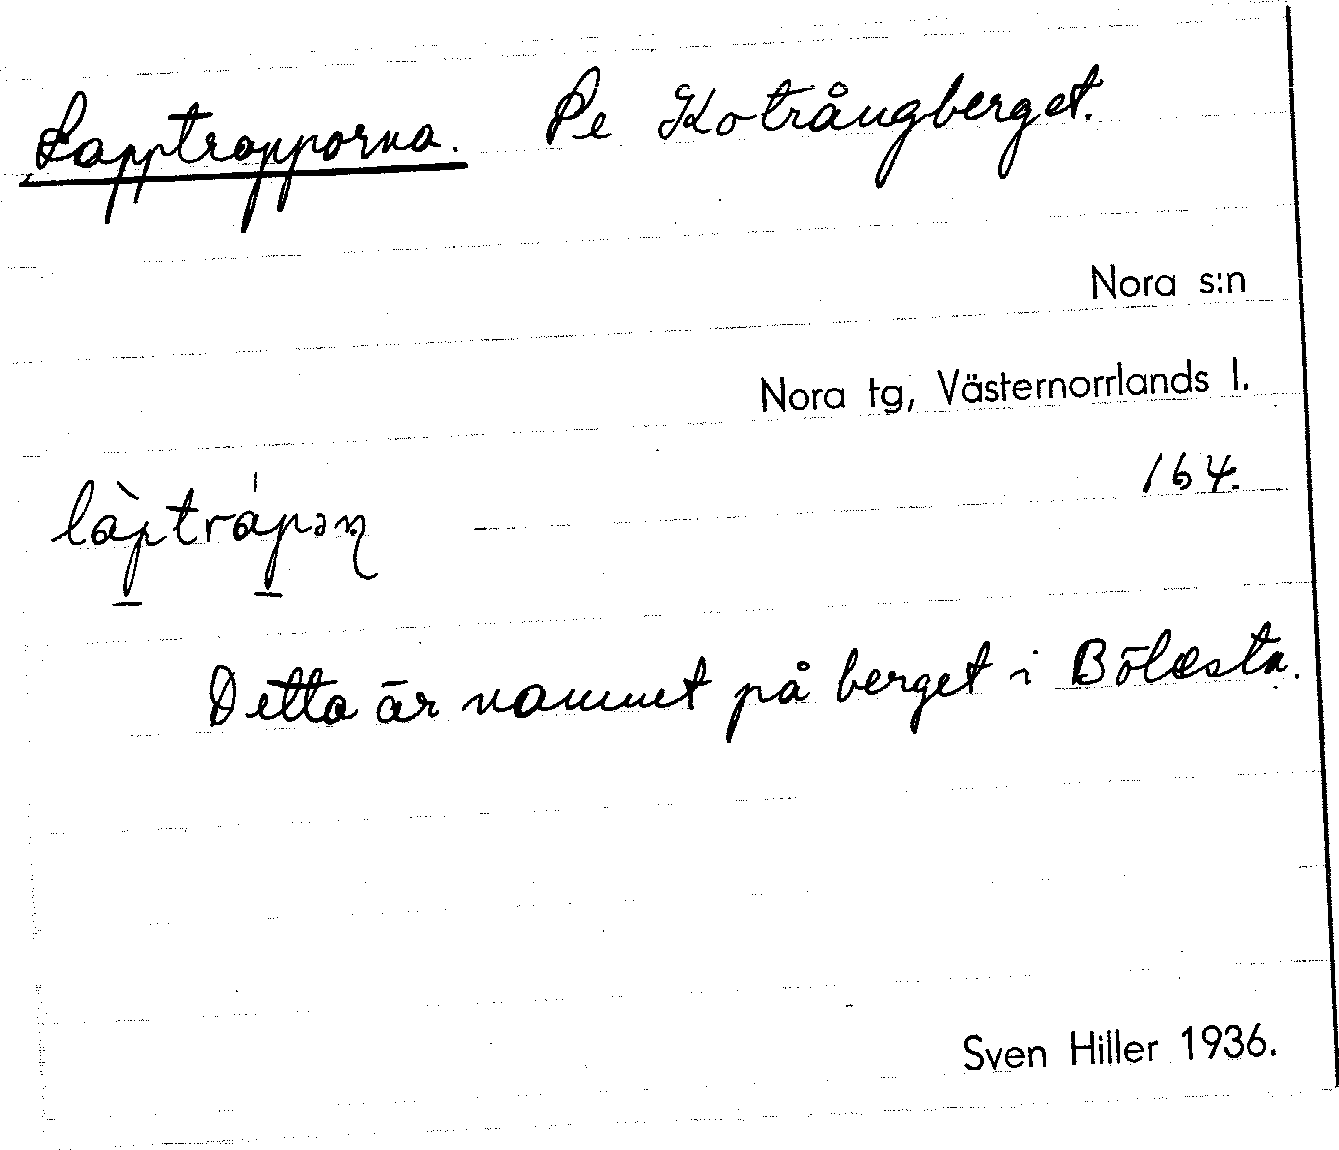 Lapptrapporna. Se Kotrångberget.
Nora s:n
Nora tg, Västernorrlands l.
164.
Detta är namnet på berget i Bölesta.
Sven Hiller 1936.